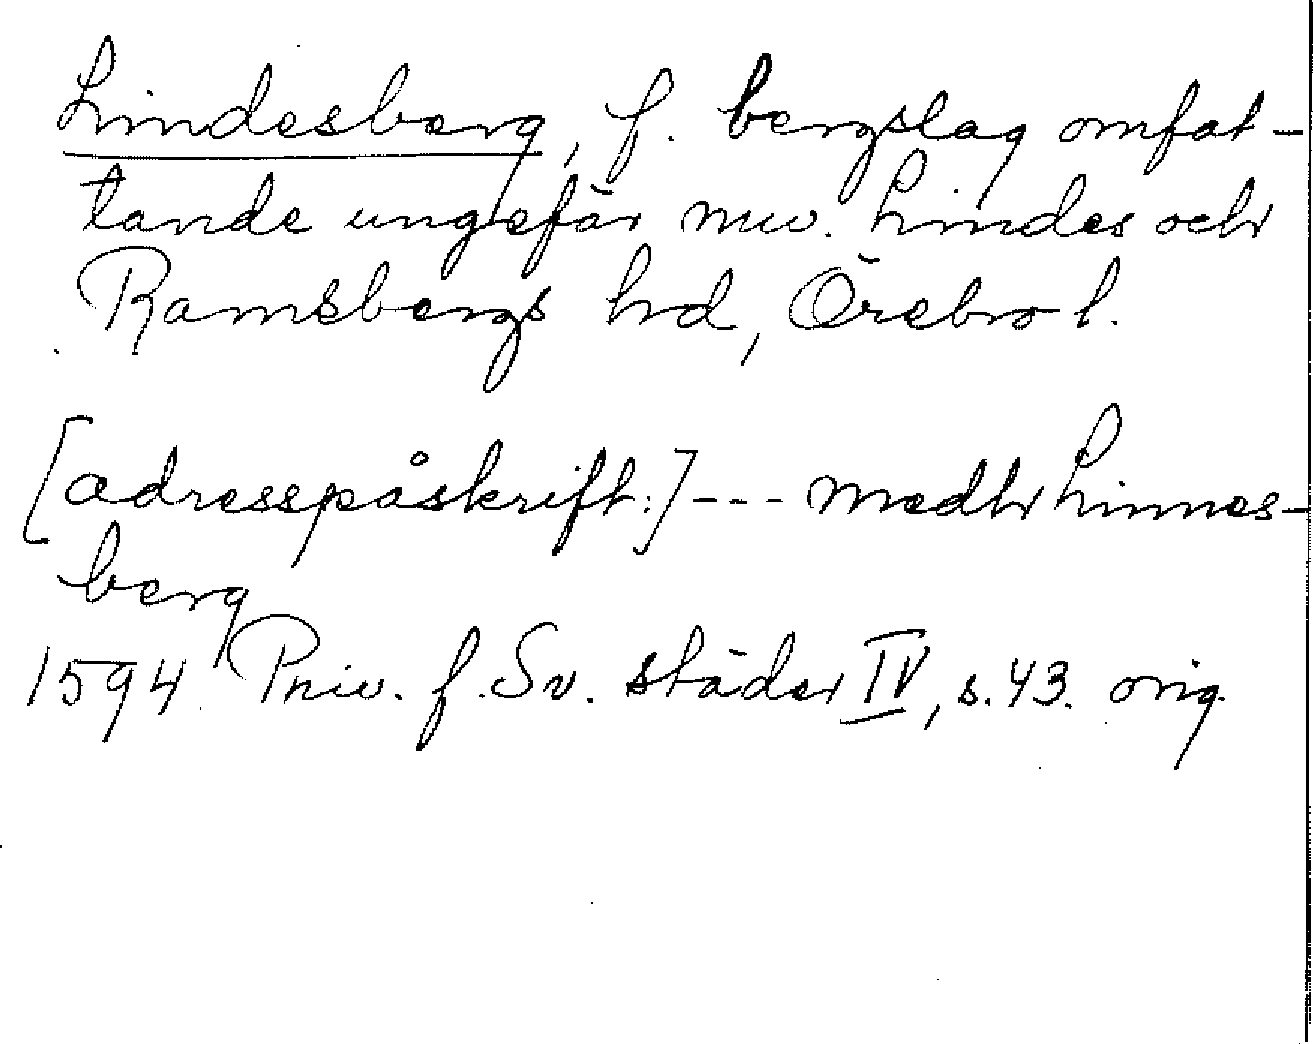 Lindesberg, f. bergslag omfat-
tande ungefär nuv. Lindes och
Ramsbergs hd, Örebro l.
[adresspåskrift:] --- medh Linnes-
berg
1594 Priv. f. Sv. städer IV, s. 43. orig.